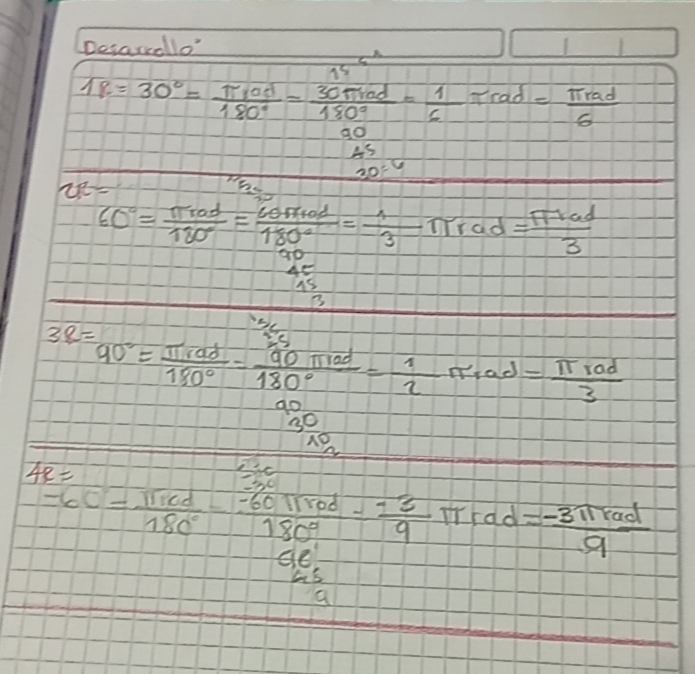 Desarrollo
1R = 30° = πrad/180° = 30πrad/180° = 1/6 πrad = πrad/6
15 5 1
90
45
2R =
60° = πrad/180° = 60πrad/180° = 1/3 πrad = πrad/3
90
45
15
3
3R =
90° = πrad/180° = 90πrad/180° = 1/2 πrad = πrad/3
90
30
10
2
4R =
-30
-60 = πrad/180° = -60πrad/180° = -3/9 πrad = -3πrad/9
90
45
9